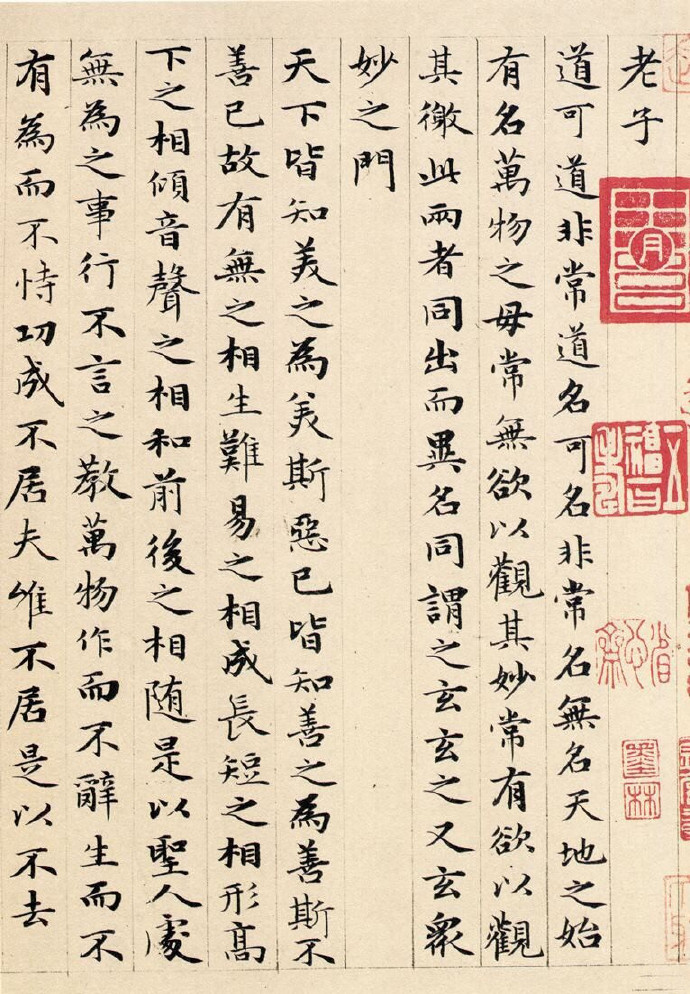 墨林
老子
道可道非常道名可名非常名無名天地之始
有名萬物之母常無欲以觀其妙常有欲以觀
其徼此兩者同出而異名同謂之玄玄之又玄衆
妙之門
天下皆知美之為美斯惡已皆知善之為善斯不
善已故有無之相生難易之相成長短之相形高
下之相傾音聲之相和前後之相随是以聖人處
無為之事行不言之教萬物作而不辭生而不
有為而不恃功成不居夫惟不居是以不去